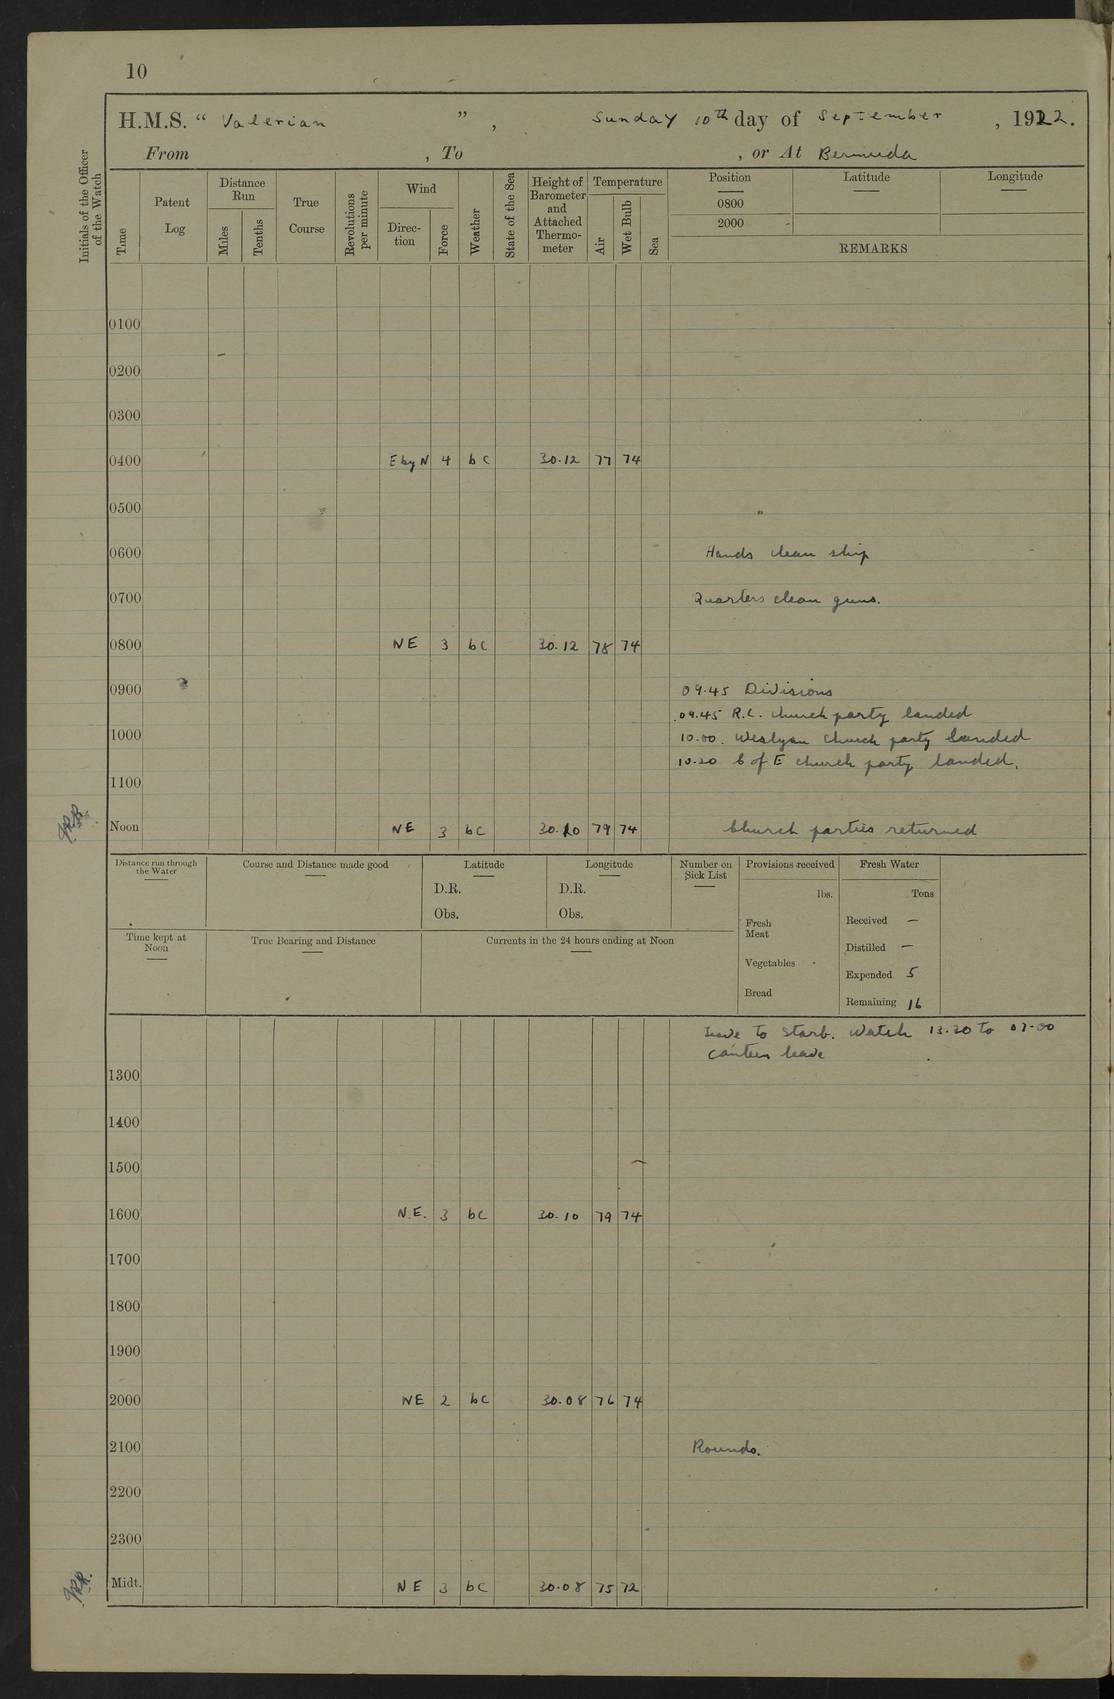 10
H.M.S. “ Valerian ” , Sunday 10th day of September , 1922.
From , To , or At Bermuda
Initials of the Officer of the Watch
Time
Patent Log
Distance Run
Miles
Tenths
True Course
Revolutions per minute
Wind
Direc-tion
Force
Weather
State of the Sea
Height of Barometer and Attached Thermo-meter
Temperature
Air
Wet Bulb
Sea
Position Latitude Longitude
0800
2000
REMARKS
0100
0200
0300
0400 E by N 4 bc 30.12 77 74
0500
0600 Hands clean ship
0700 Quarters clean guns.
0800 NE 3 bc 30.12 78 74
0900 09.45 Divisions
09.45 R.C. church party landed
1000 10.00. Weslyan church party landed
10.20 C of E church party landed.
1100
Noon NE 3 bc 30.10 79 74 Church parties returned
Distance run through the Water
Course and Distance made good
Latitude
D.R.
Obs.
Longitude
D.R.
Obs.
Number on Sick List
Provisions received
lbs.
Fresh Meat
Vegetables
Bread
Fresh Water
Tons
Received —
Distilled —
Expended 5
Remaining 16
Time kept at Noon
True Bearing and Distance
Currents in the 24 hours ending at Noon
Leave to Starb. Watch 13.20 to 07.00
Canteen leave
1300
1400
1500
1600 N.E. 3 bc 30.10 79 74
1700
1800
1900
2000 NE 2 bc 30.08 76 74
2100 Rounds.
2200
2300
Midt. NE 3 bc 30.08 75 72